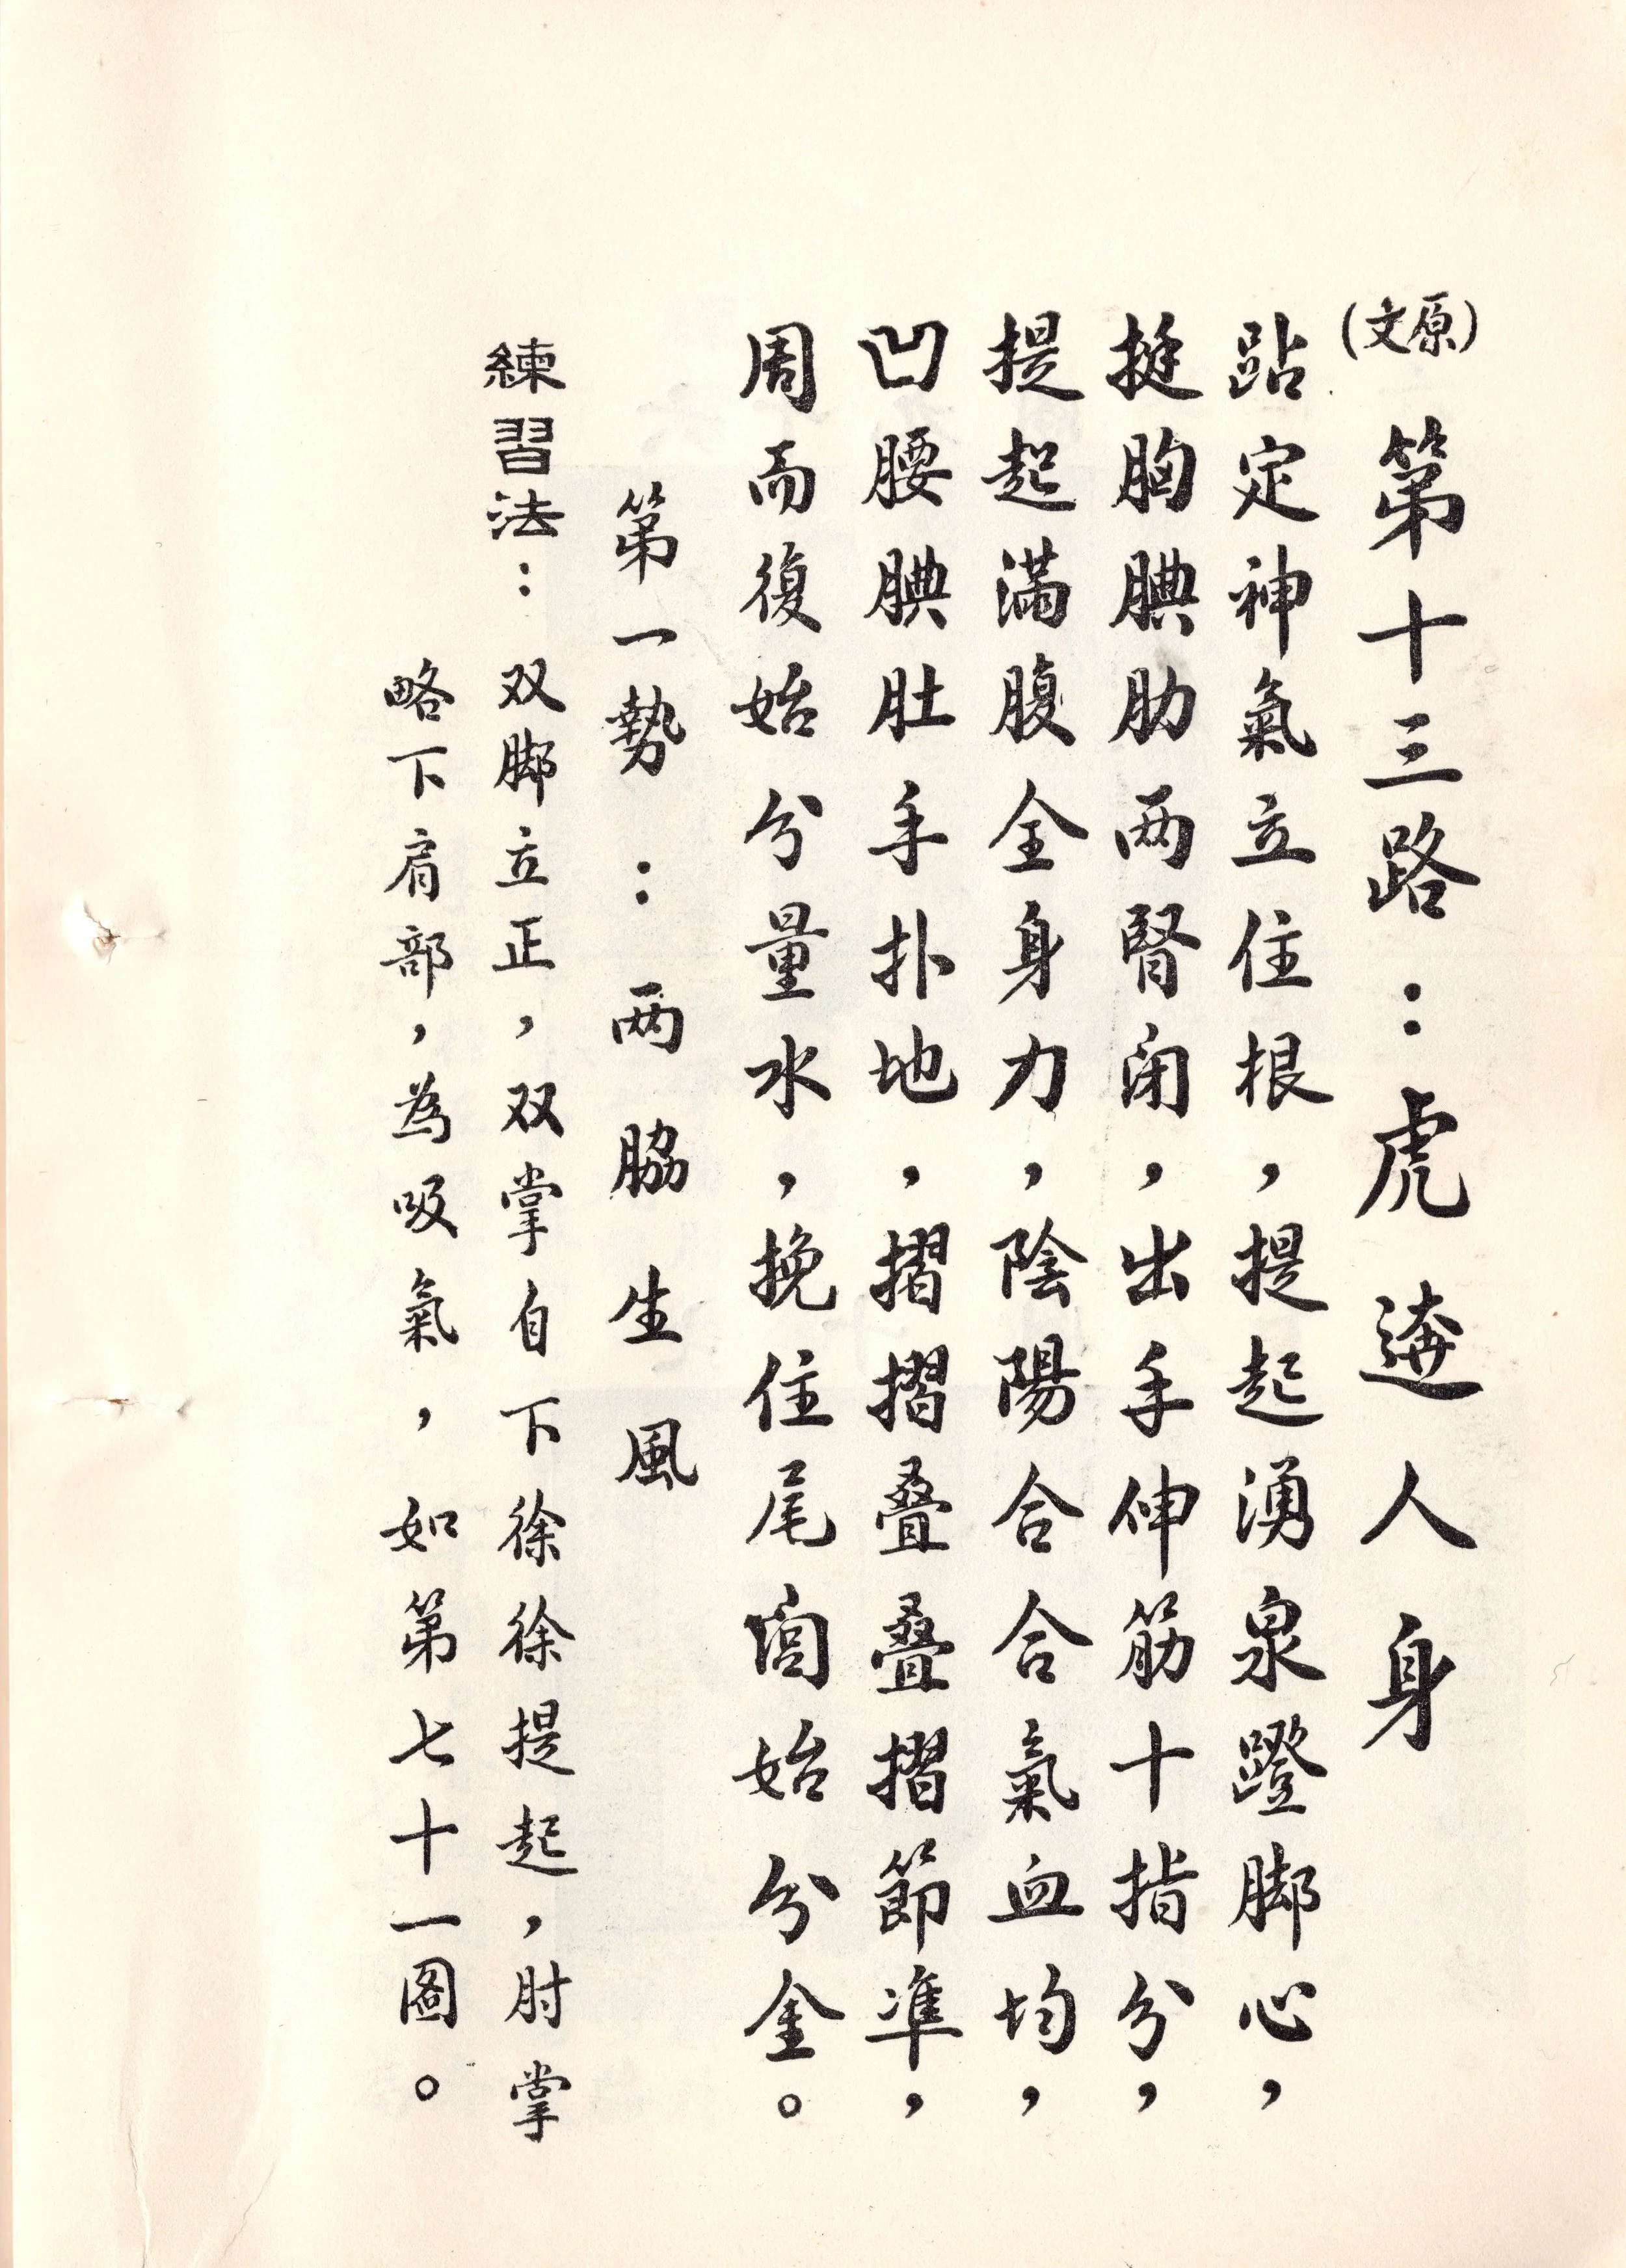 (原文) 第十三路：虎逩人身
跕定神氣立住根，提起湧泉蹬脚心，
挺胸腆肋两腎闭，出手伸筋十指分，
提起滿腹全身力，陰陽合合氣血均，
凹腰腆肚手扑地，摺摺叠叠摺節準，
周而復始分量水，挽住尾闾始分金。
第一勢：两脇生風
練習法：双脚立正，双掌自下徐徐提起，肘掌
略下肩部，為吸氣，如第七十一圖。